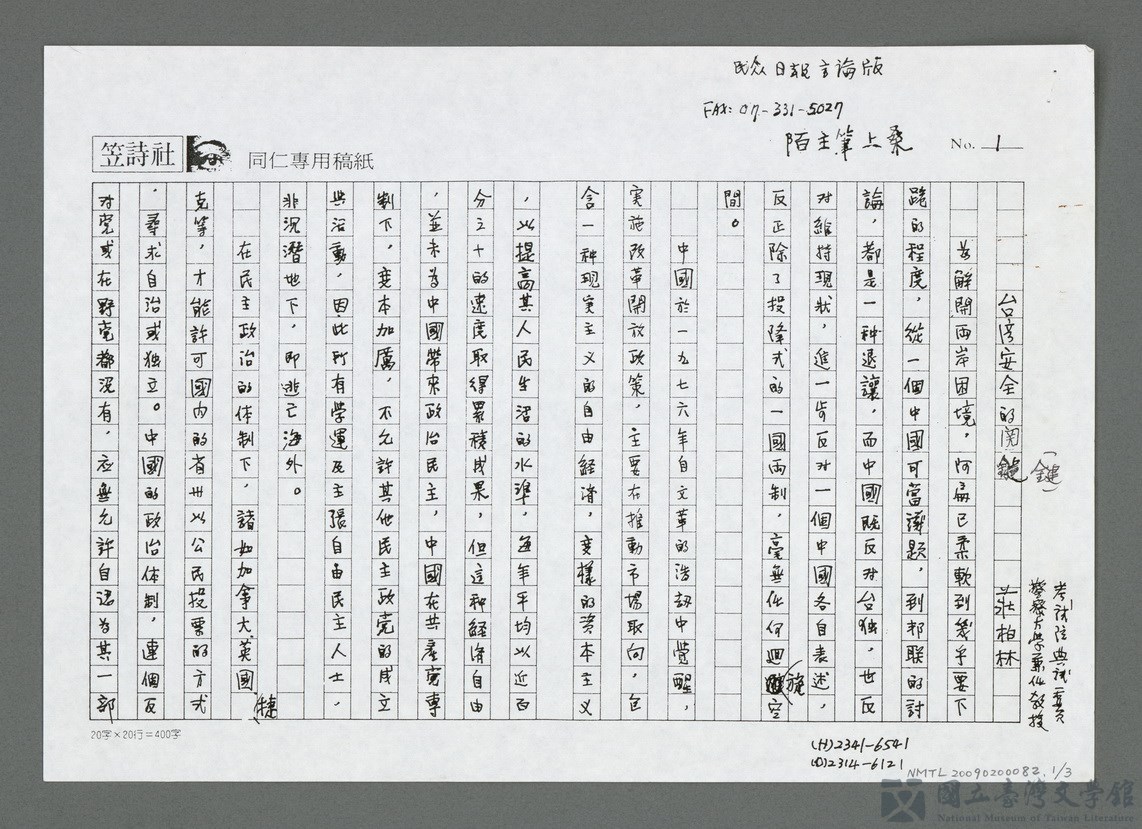 民眾日報言論版
FAX: 07-331-5027
陌主筆上桑
No. 1
笠詩社
同仁專用稿紙
台湾安全的関鍵
(鍵)
莊柏林
考試院典試委員
警察大學兼任教授
為解開兩岸困境，阿扁已柔軟到幾乎要下
跪的程度，從一個中國可當議題，到邦联的討
論，都是一种退讓，而中國既反对台独，也反
对維持現狀，進一步反对一個中國各自表述，
反正除了投降式的一國両制，毫無任何迴旋空
間。
中國於一九七六年自文革的浩劫中覺醒，
実施改革開放政策，主要在推動市場取向，包
含一种現実主义的自由経済，变樣的資本主义
，以提高其人民生活的水準，每年平均以近百
分之十的速度取得累積成果，但这种経済自由
，並未為中國帶來政治民主，中國在共產党專
制下，変本加厲，不允許其他民主政党的成立
與活動，因此所有學運及主張自由民主人士，
非沉潛地下，即逃亡海外。
在民主政治的体制下，諸如加拿大英國捷
克等，才能許可國内的省州以公民投票的方式
，尋求自治或独立。中國的政治体制，連個反
对党或在野党都沒有，在無允許自認為其一部
20字×20行=400字
(H)2341-6541
(O)2314-6121
NMTL 20090200082, 1/3
國立臺灣文學館
National Museum of Taiwan Literature